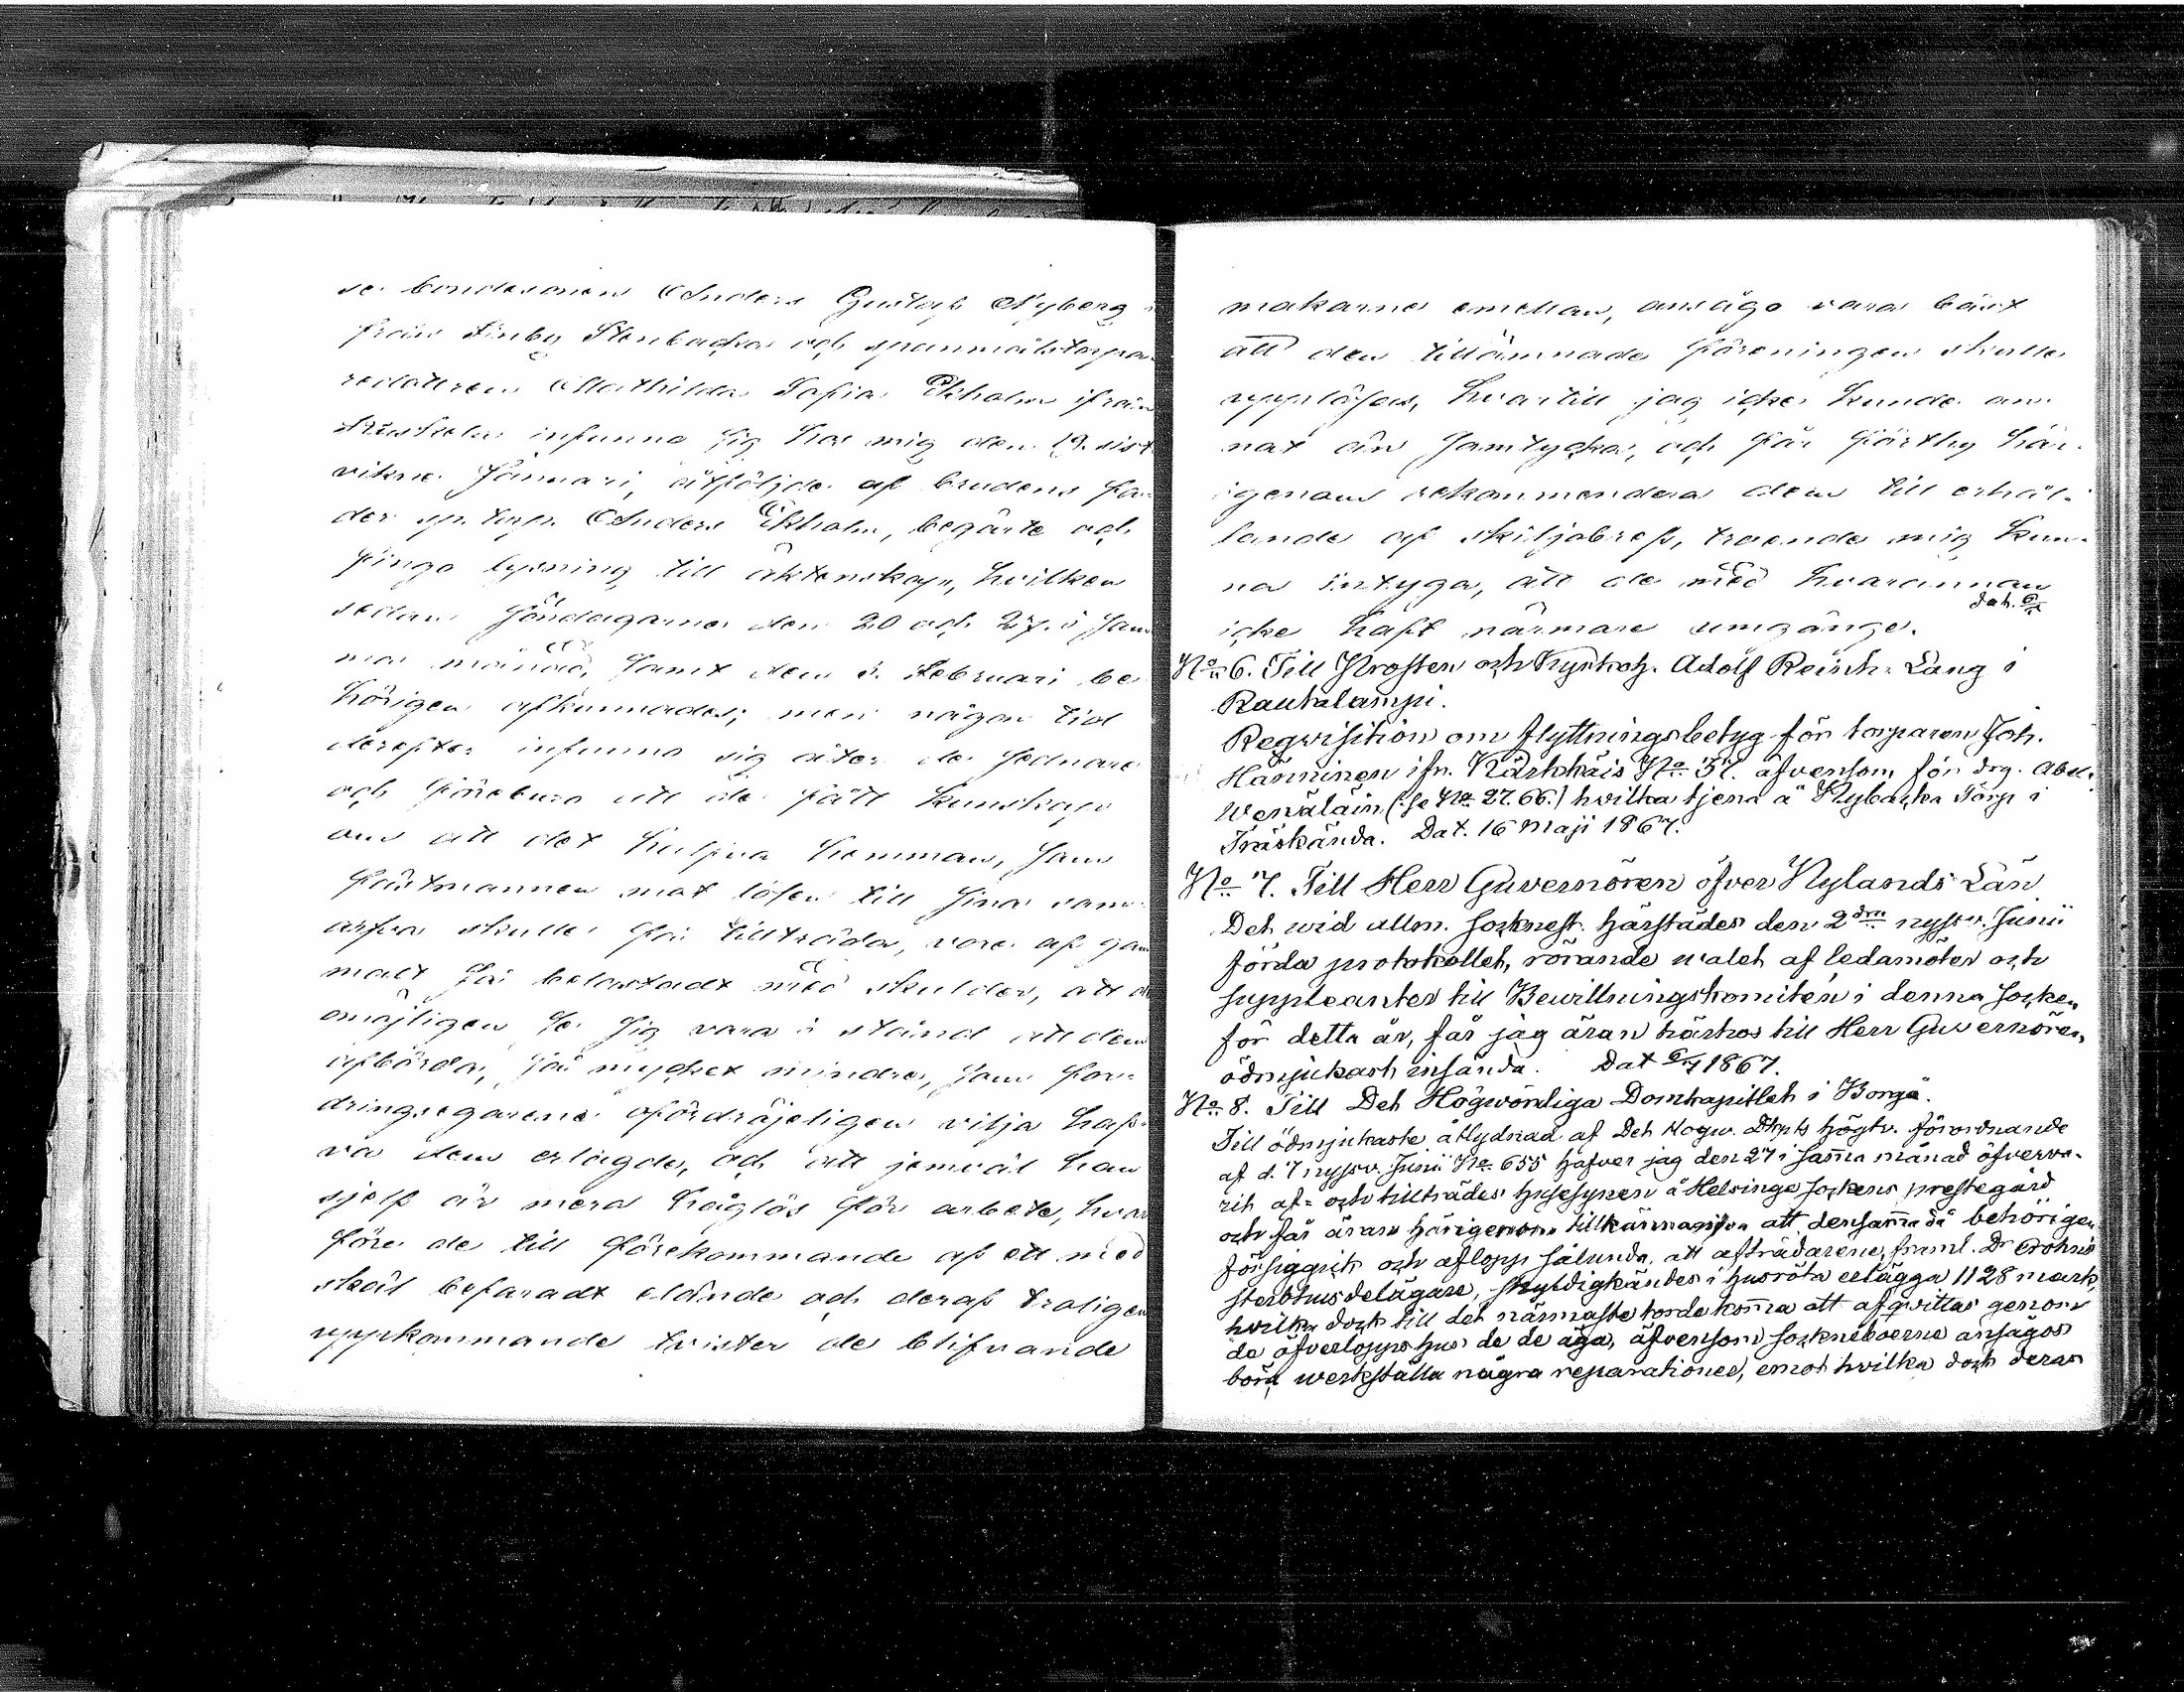 se bondesonen Anders Gustaf Nyberg
från Finby Stenbacka och spanmålstorpa-
redottren Mathilda Sofia Ekholm ifrån
Kuskela infunno sig hos mig den 19. sist-
vikne Januari, åtföljde af brudens fa-
der sp. torp. Anders Ekholm, begärte och
fingo lysning till äktenskap, hvilken
sedan Söndagarne den 20 och 27. i sam-
ma månad, samt den 3. Februari be-
hörigen afkunnades; men någon tid
derefter infunno sig åter de sednare
och föreburo att de fått kunskap
om att det halfva hemman, som
fästmannen mot lösen till sina sam-
arfva skulle få tillträda, vore af gam-
malt så belastadt med skulder, att de
omöjligen se sig vara i stånd att dem
afbörda, så mycket mindre, som for-
dringsegarene ofördröjeligen vilja haf-
va dem erlagde, och att jemväl han
sjelf är mera håglös för arbete, hvar-
före de till förekommande af ett med
skäl befaradt elände och deraf troligen
uppkommande tvister de blifvande
makarne emellan, ansågo vara bäst
att den tillämnade föreningen skulle
upplösas, hvartill jag icke kunde an-
nat än samtycka, och får förthy här-
igenom rekommendera dem till erhål-
lande af skiljobref, troende mig kun-
na intyga, att de med hvarannan
icke haft närmare umgänge.
dat. 6/
No 6. Till Prosten och Kyrkoh. Adolf Reinh. Lang i
Rautalampi.
Reqvisition om flyttningsbetyg för torparen Joh.
Hänninen ifr. Kärkkäis No 51. äfvensom för drg. Abel
Wenäläin (se No 27.66.) hvilka tjena å Nybacka Torp i
Träskända. Dat. 16 Maji 1867.
No 7. Till Herr Guvernören öfver Nylands Län
Det wid allm. socknest. härstädes den 2dra nyssv. Junii
förda protokollet, rörande walet af ledamöter och
suppleanter till Bewillningskomitén i denna socken
för detta år, får jag äran härhos till Herr Guvernören
ödmjukast insända. Dat 6/7 1867.
No 8. Till Det Högwördiga Domkapitlet i Borgå.
Till ödmjukaste åtlydnad af Det Högw. Dkpts högtv. förordnande
af d. 7 nyssv. Junii No 655 hafver jag den 27 i samma månad öfverva-
rit af- och tillträdes husesynen å Helsinge sockens prestegård
och får äran härigenom tillkännagifva att densamma då behörigen
försiggick och aflopp sålunda, att afträdarene, framl. Dr Crohns
sterbhusdelägare, skyldigkändes i husröta erlägga 1128 mark,
hvilka dock till det närmaste torde komma att afqvittas genom
de öfverlopps hus de de äga, äfvensom sockneboerne ansågos
böra werkställa några reparationer, emot hvilka dock deras